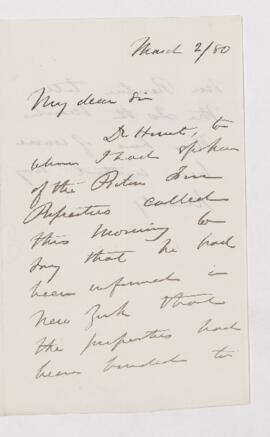 March 2/80
My dear Sir
Dr Hunt, to
whom I had spoken
of the Pictou Iron
Properties called
this morning to
say that he had
been informed in
New York that
the properties had
been bonded to